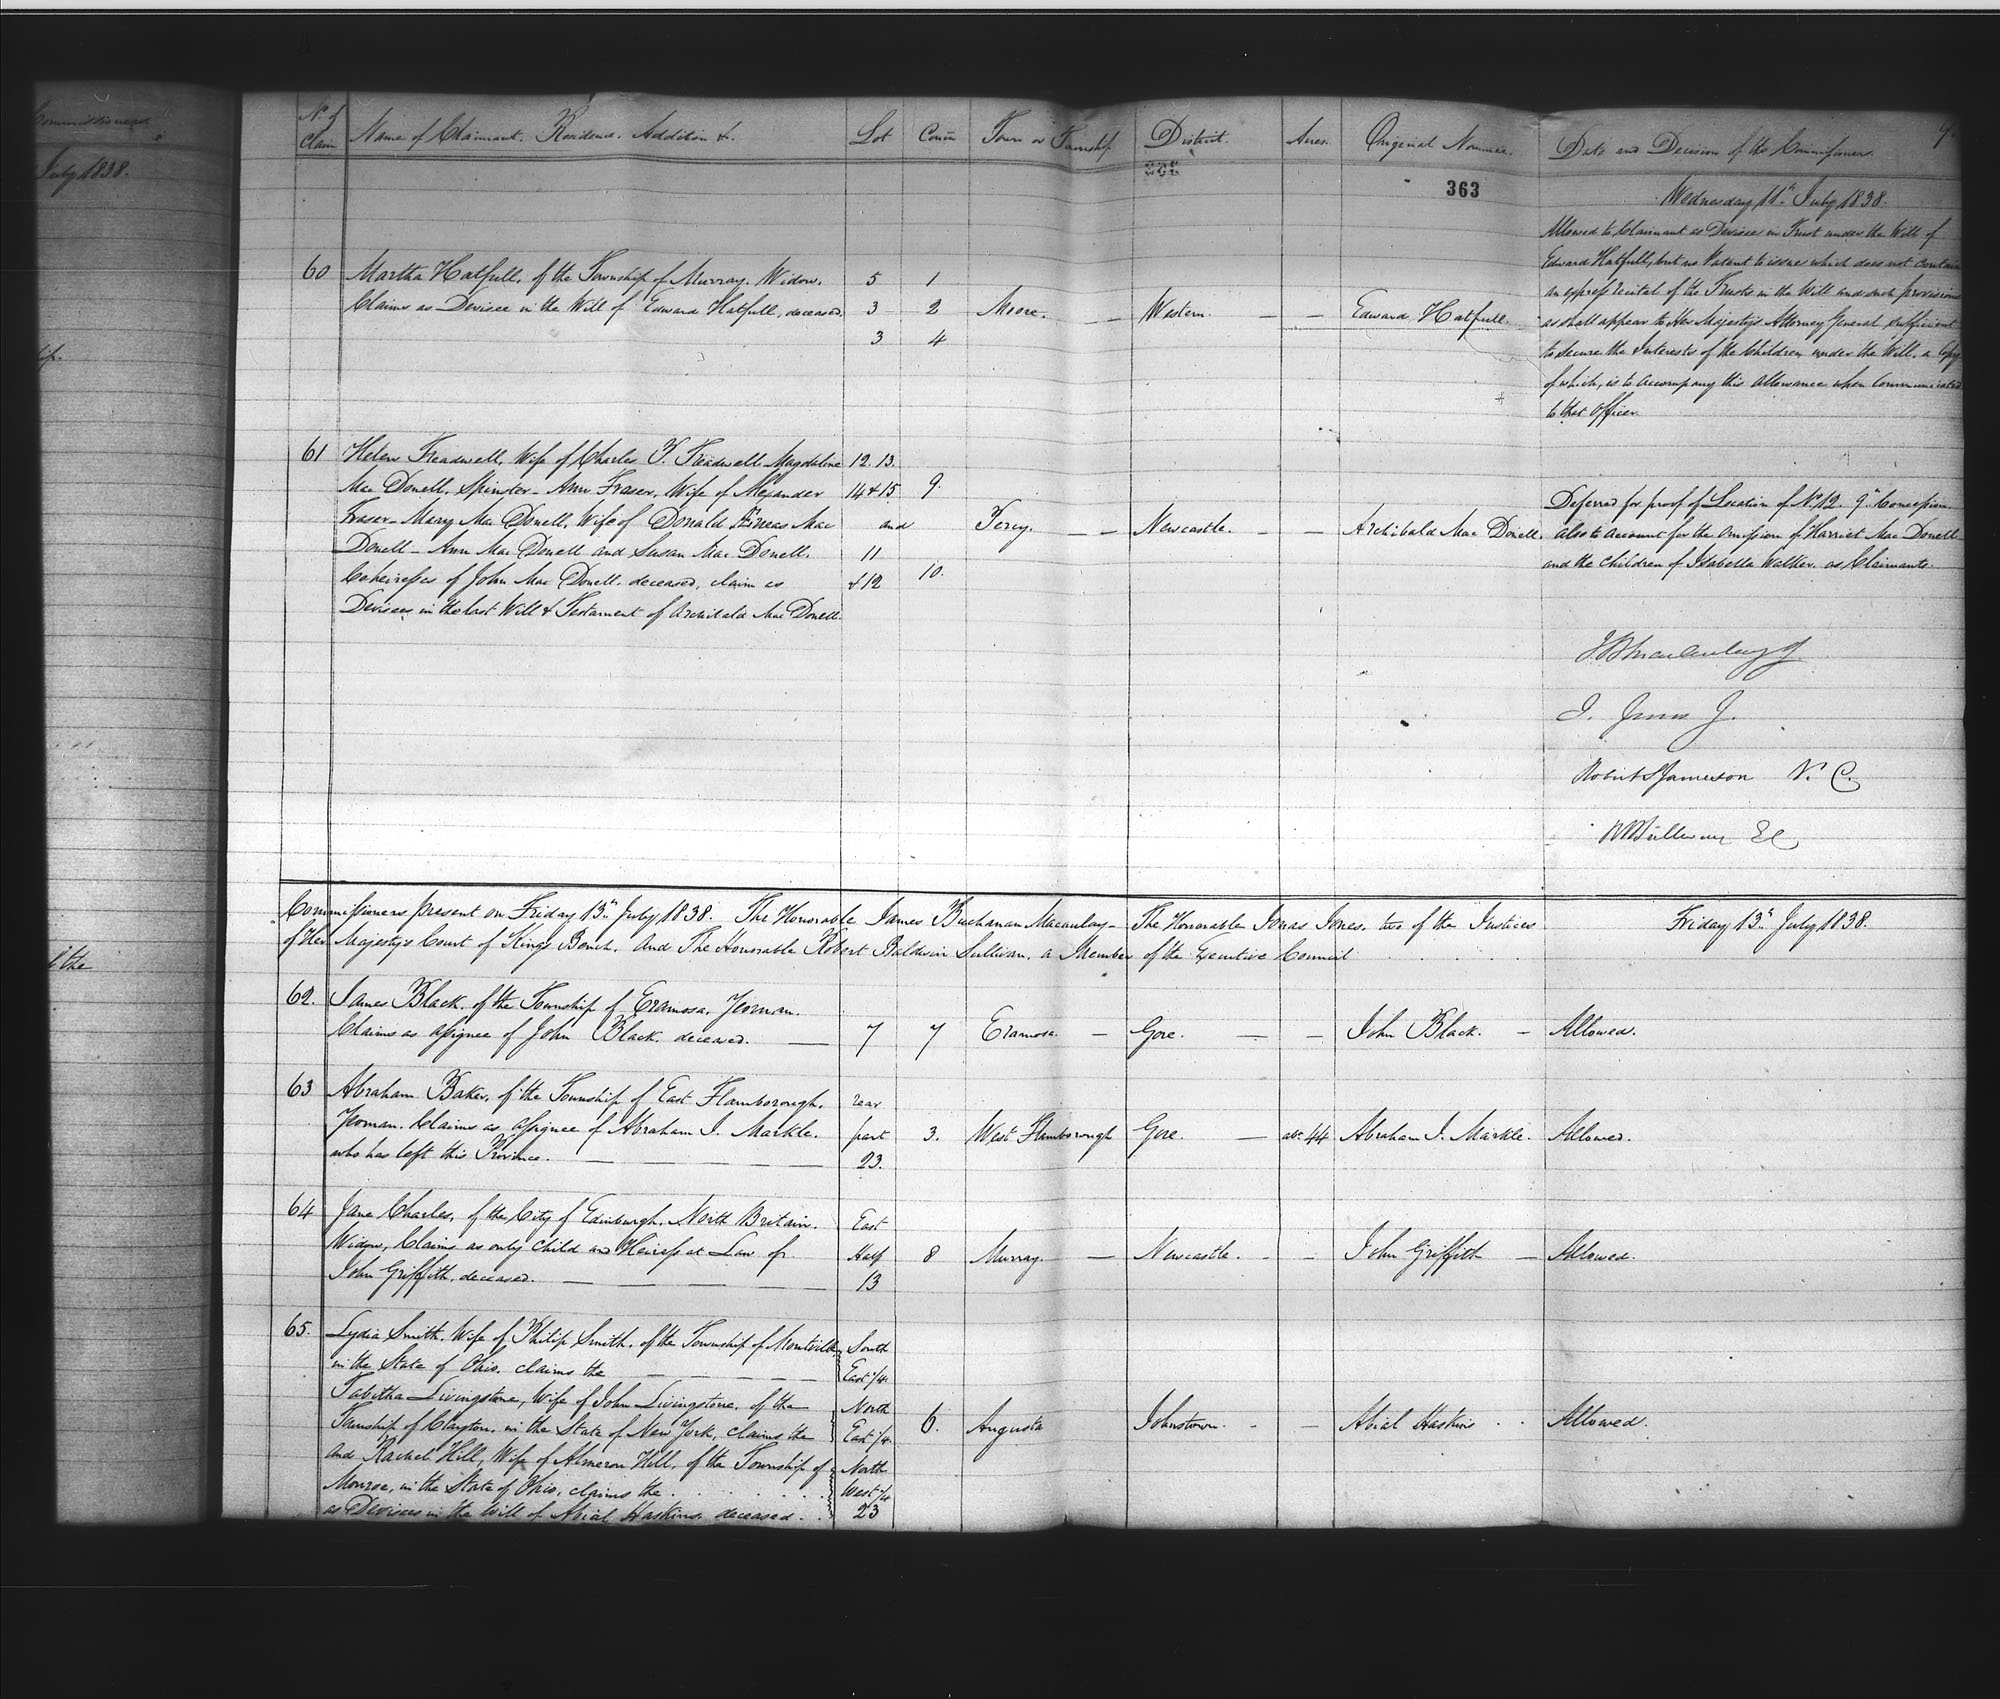 Commissioners
July 1838.
the
No. of Claim Name of Claimant. Residence. Addition &c. Lot Conn Town or Township District. Acres. Original Nominee. Date and Decision of the Commissioners. 9.
363
Wednesday 11th July 1838.
60 Martha Hatfull, of the Township of Murray. Widow. 5 1
Claims as Devisee in the Will of Edward Hatfull, deceased. 3 2 Moore. Western. Edward Hatfull.
3 4
Allowed to Claimant as Devisee in Trust under the Will of
Edward Hatfull, but no Patent to issue which does not contain
an express recital of the Trusts in the Will and such provisions
as shall appear to Her Majesty's Attorney General sufficient
to secure the interests of the Children under the Will, a Copy
of which, is to accompany this allowance when Communicated
to that Officer.
61 Helen Treadwell, Wife of Charles P. Treadwell Magdaline 12. 13.
Mac Donell, Spinster - Ann Fraser, Wife of Alexander 14 & 15 9.
Fraser - Mary Mac Donell, Wife of Donald Æneas Mac and Percy. Newcastle. Archibald Mac Donell.
Donell - Ann Mac Donell and Susan Mac Donell, 11
Coheiresses of John Mac Donell, deceased, claim as & 12 10.
Devisees in the last Will & Testament of Archibald Mac Donell.
Deferred for proof of Location of No. 12. 9th Concession.
also to account for the omission of Harriet Mac Donell
and the Children of Isabella Walker, as Claimants.
J B Macaulay J
J. Jones J.
Robert S Jameson V. C.
R B Sullivan EC
Commissioners present on Friday 13th July 1838. The Honorable James Buchanan Macaulay - The Honorable Jonas Jones, two of the Justices
of Her Majesty's Court of Kings Bench. And The Honorable Robert Baldwin Sullivan, a Member of the Executive Council
Friday 13th July 1838.
62. James Black, of the Township of Eramosa, Yeoman.
Claims as assignee of John Black, deceased. 7 7 Eramosa. Gore. John Black. Allowed.
63 Abraham Baker, of the Township of East Flamborough, rear
Yeoman. Claims as assignee of Abraham I. Markle, part 3. West Flamborough Gore. abt. 44 Abraham I. Markle. Allowed.
who has left this Province. 23.
64 Jane Charles, of the City of Edinburgh, North Britain. East
Widow, Claims as only child and Heiress at Law of Half 8 Murray. Newcastle. John Griffith Allowed.
John Griffith, deceased. 13
65. Lydia Smith, Wife of Philip Smith, of the Township of Montville South
in the State of Ohio. claims the East 1/4.
Tabitha Livingstone, Wife of John Livingstone, of the North
Township of Clayton, in the State of New York, claims the East 1/4. 6. Augusta Johnstown. Abial Haskins Allowed.
and Rachel Hill, Wife of Almeron Hill, of the Township of North
Monroe, in the State of Ohio, claims the West 1/4
as Devisees in the Will of Abial Haskins, deceased. 23